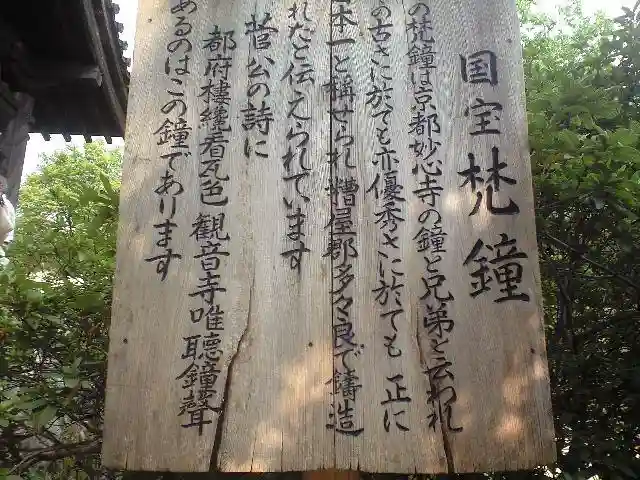 国宝 梵鐘
の梵鐘は京都妙心寺の鐘と兄弟と云われ
の古さに於ても亦優秀さに於ても 正に
本一と称せられ 糟屋郡多々良で鋳造
れたと伝えられています
菅公の詩に
都府楼纔看瓦色 観音寺唯聴鐘聲
あるのはこの鐘であります